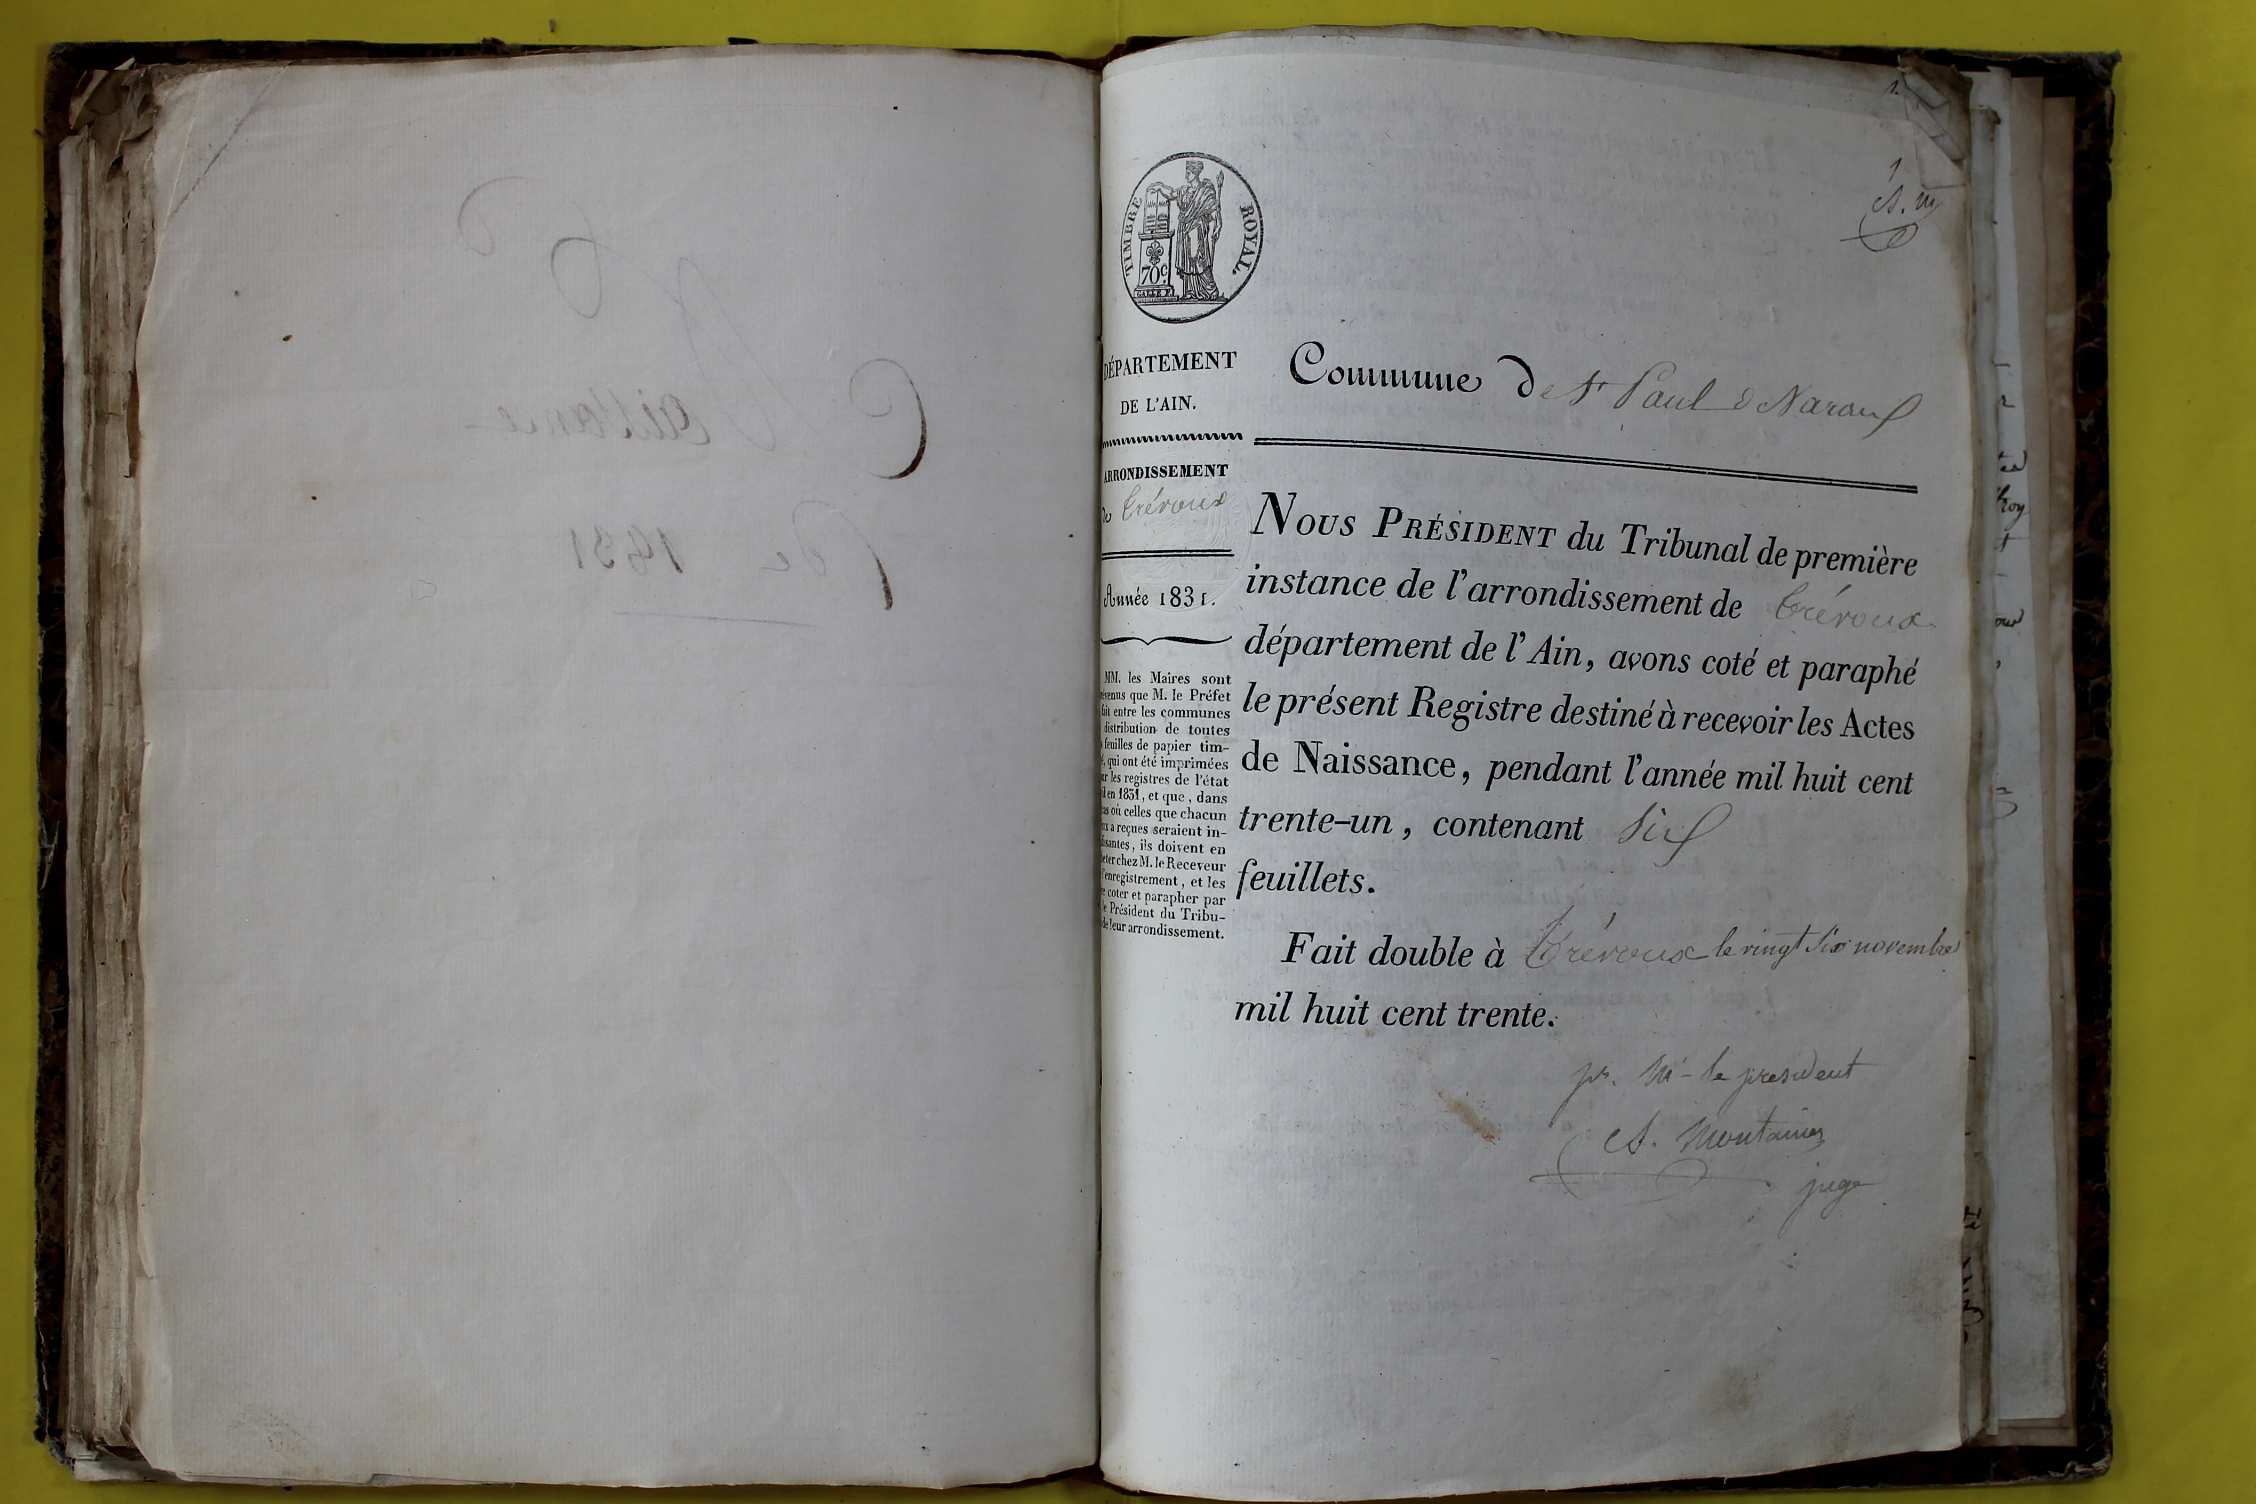 Naissance
de 1831
1.
1
A. M
TIMBRE ROYAL.
70c.
DÉPARTEMENT
DE L'AIN.
Commune de St Paul de Varax
ARRONDISSEMENT
de Trévoux
Année 1831.
MM. les Maires sont
venus que M. le Préfet
fait entre les communes
distribution de toutes
feuilles de papier tim-
qui ont été imprimées
les registres de l'état
en 1831, et que, dans
cas où celles que chacun
a reçues seraient in-
santes, ils doivent en
chez M. le Receveur
l'enregistrement, et les
coter et parapher par
le Président du Tribu-
de leur arrondissement.
NOUS PRÉSIDENT du Tribunal de première
instance de l'arrondissement de Trévoux
département de l'Ain, avons coté et paraphé
le présent Registre destiné à recevoir les Actes
de Naissance, pendant l'année mil huit cent
trente-un, contenant Six
feuillets.
Fait double à Trévoux le vingt Six novembre
mil huit cent trente.
pr. Mr le president
A. Montainer
juge